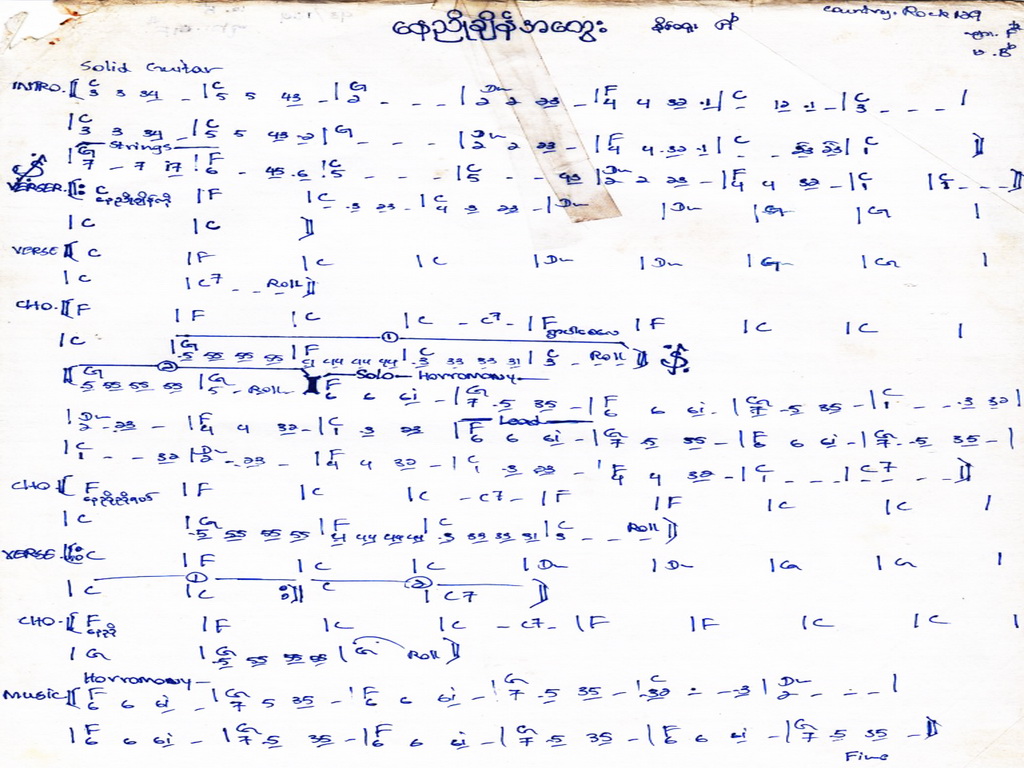 နေညိုချိန်အတွေး
Country. Rock 129
Solid Guitar
INTRO. [ C 3 3 34 - | C 5 5 43 - | G 2 - - - | Dm 2 2 23 - | F 4 4 32 .1 | C - 12 .1 - | C 3 - - - |
| C 3 3 34 - | C 5 5 43 .2 | G - - - - | Dm 2 2 23 - | F 4 4 .32 .1 | C - - 53 23 | C 1 ]
Strings
| G 7 - 7 17 | F 6 - 45 .6 | C 5 - - - | C 5 - - 43 | Dm 2 2 23 - | F 4 4 32 - | C 1 | C 1 - - - ]
VERSE [: C | F | C - .3 23 - | C 4 .3 23 - | Dm | Dm | G | G |
| C | C ]
VERSE [ C | F | C | C | Dm | Dm | G | G |
| C | C7 - - Roll ]
CHO. [ F | F | C | C - C7 - | F | F | C | C |
| C ① | G .5 55 55 55 55 | F 44 44 44 44 | C .3 33 33 31 | C 3 - Roll ]
② [ G 5 55 55 55 | G 5 - Roll ] Solo Horromony [ F 6 6 61 - | G 7 .5 35 - | F 6 6 61 - | G 7 .5 35 - | C 1 - - .3 32 |
| Dm 2 - 23 - | F 4 4 32 - | C 1 .3 23 | Lead F 6 6 61 - | G 7 .5 35 - | F 6 6 61 - | G 7 .5 35 - |
| C 1 - - 32 | Dm 2 - .23 - | F 4 4 32 - | C 1 .3 23 - | F 4 4 32 - | C 1 - - - | C7 - - - ]
CHO [ F | F | C | C - C7 - | F | F | C | C |
| C | G .5 55 55 55 | F 44 44 44 44 | C .3 33 33 31 | C 3 - - Roll ]
VERSE [: C | F | C | C | Dm | Dm | G | G |
| C ① | C :] | C ② | C7 ]
CHO. [ F | F | C | C - C7 - | F | F | C | C |
| G | G .5 55 55 55 | G Roll ]
Horromony
MUSIC [ F 6 6 61 - | G 7 5 35 - | F 6 6 61 - | G 7 .5 35 - | C .32 - - .3 | Dm 2 - - - |
| F 6 6 61 - | G 7 .5 35 - | F 6 6 61 - | G 7 .5 35 - | F 6 6 61 - | G 7 .5 35 - ]
Fine